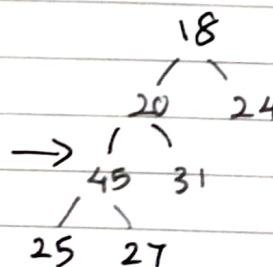 18
20 24
45 31
25 27